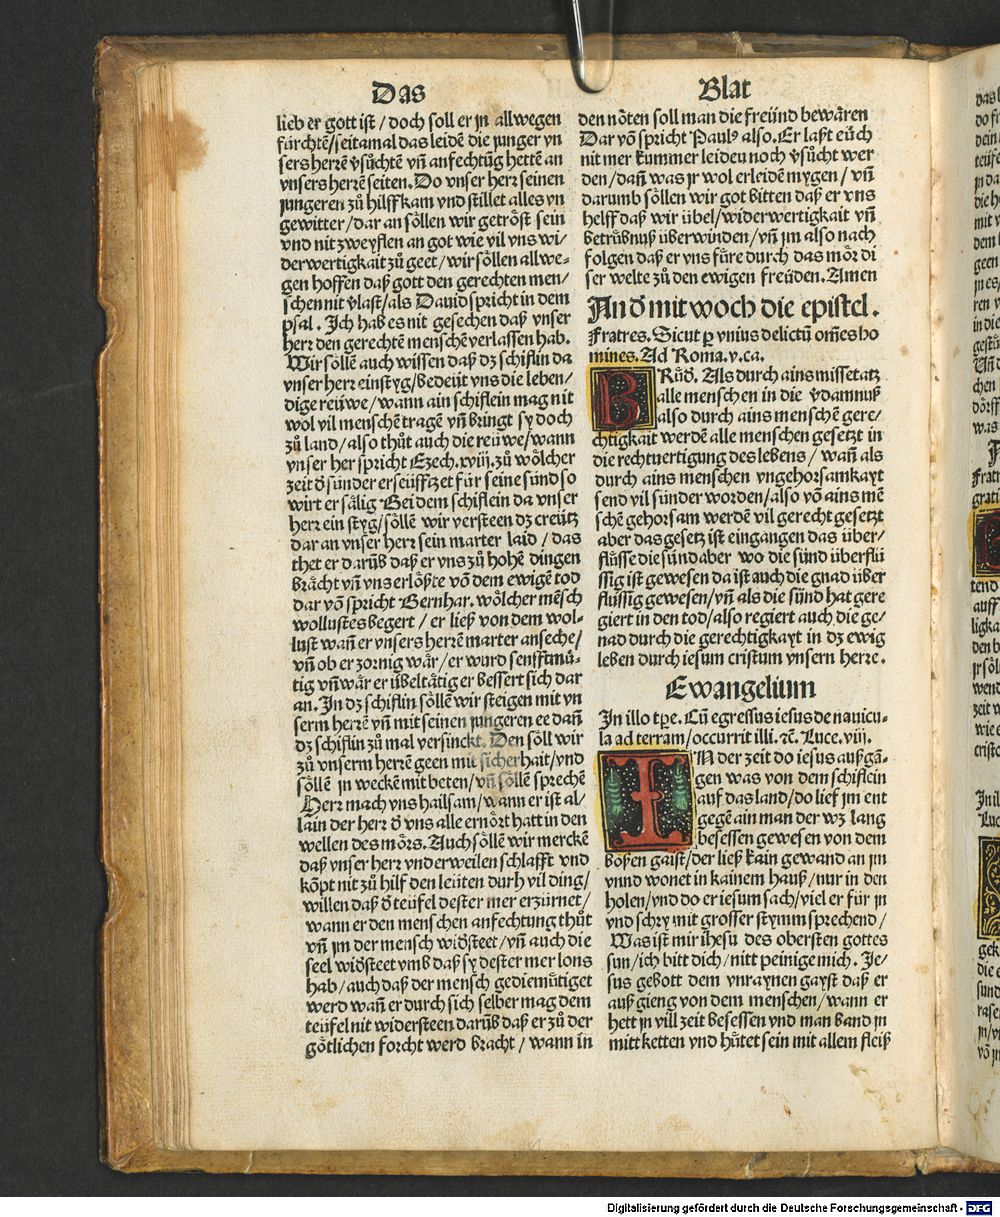 Das
Blat
lieb er gott ist / doch soll er jn allwegen
fürchtē/seitamal das leidē die junger vn
sers herrē v̄sůchtē vn̄ anfechtūg hettē an
vnsers herrē seiten. Do vnser herr seinen
jungeren zů hilff kam vnd stillet alles vn
gewitter / dar an söllen wir getröst sein
vnd nit zweyflen an got wie vil vns wi/
derwertigkait zů geet / wir söllen allwe-
gen hoffen daß gott den gerechten men/
schen nit v̄last/als Dauid spricht in dem
psal. Ich hab es nit gesechen daß vnser
herr den gerechtē menschē verlassen hab.
Wir söllē auch wissen daß dz schiflin da
vnser herr einstyg/bedeüt vns die leben/
dige reüwe/wann ain schiflein mag nit
wol vil menschē tragē vn̄ bringt sy doch
zů land/also thůt auch die reüwe/wann
vnser her spricht Ezech.xviij. zů wölcher
zeit d̄ sünder erseüfftzet für seine sünd so
wirt er sälig Bei dem schiflein da vnser
herr ein styg/söllē wir versteen dz creütz
dar an vnser herr sein marter laid / das
thet er darūb daß er vns zů hohē dingen
brächt vn̄ vns erlößte vō dem ewigē tod
dar vō spricht Bernhar. wölcher mēsch
wollustes begert / er ließ von dem wol-
lust wan̄ er vnsers herrē marter anseche/
vn̄ ob er zornig wär/er wurd senfftmü-
tig vn̄ wär er übeltätig er bessert sich dar
an. In dz schiflin söllē wir steigen mit vn
serm herrē vn̄ mit seinen jungeren ee dan̄
dz schiflin zů mal versinckt. Den söll wir
zů vnserm herrē geen mit sicherhait/vnd
söllē in weckē mit beten/vn̄ söllē sprechē
Herr mach vns hailsam/wann er ist al/
lain der herr d̄ vns alle ernört hatt in den
wellen des mörs. Auch söllē wir merckē
daß vnser herr vnderweilen schlafft vnd
köpt nit zů hilf den leüten durh vil ding/
willen daß d̄ teüfel dester mer erzürnet/
wann er den menschen anfechtung thůt
vn̄ jm der mensch wid̄steet/vn̄ auch die
seel wid̄steet vmb daß sy dester mer lons
hab/auch daß der mensch gediemütiget
werd wan̄ er durch sich selber mag dem
teüfel nit widersteen darūb daß er zů der
götlichen forcht werd bracht / wann in
den nöten soll man die freünd bewären
Dar vō spricht Paulꝰ also. Er laßt eüch
nit mer kummer leideu noch v̄sůcht wer
den/dan̄ was jr wol erleidē mygen/vn̄
darumb söllen wir got bitten daß er vns
helff daß wir übel/widerwertigkait vn̄
betrübnuß überwinden/vn̄ jm also nach
folgen daß er vns füre durch das mör di
ser welte zů den ewigen freüden. Amen
An d̄ mitwoch die epistel.
Fratres. Sicut ꝑ vnius delictū om̄es ho
mines. Ad Roma.v.ca.
BRůd̄. Als durch ains missetatz
alle menschen in die v̄damnuß
also durch ains menschē gere/
chtigkait werdē alle menschen gesetzt in
die rechtuertigung des lebens / wan̄ als
durch ains menschen vngehorsamkayt
send vil sünder worden/also vō ains mē
schē gehorsam werdē vil gerecht gesetzt
aber das gesetz ist eingangen das über/
flüsse die sünd aber wo die sünd überflü
ssig ist gewesen da ist auch die gnad über
flüssig gewesen/vn̄ als die sünd hat gere
giert in den tod/also regiert auch die ge/
nad durch die gerechtigkayt in dz ewig
leben durch iesum cristum vnsern herre.
Ewangelium
In illo tꝑe. Cū egressus iesus de nauicu-
la ad terram/occurrit illi. ꝛc̄. Luce.viij.
IN der zeit do iesus außgā-
gen was von dem schiflein
auf das land/do lief jm ent
gegē ain man der wz lang
besessen gewesen von dem
bößen gaist/der ließ kain gewand an jm
vnnd wonet in kainem hauß/nur in den
holen/vnd do er iesum sach/viel er für jn
vnd schry mit grosser stymm sprechend/
Was ist mir ihesu des obersten gottes
sun/ich bitt dich/nitt peinige mich. Je/
sus gebott dem vnraynen gayst daß er
auß gieng von dem menschen/wann er
hett jn vill zeit besessen vnd man band jn
mitt ketten vnd hůtet sein mit allem fleiß
Digitalisierung gefördert durch die Deutsche Forschungsgemeinschaft - DFG